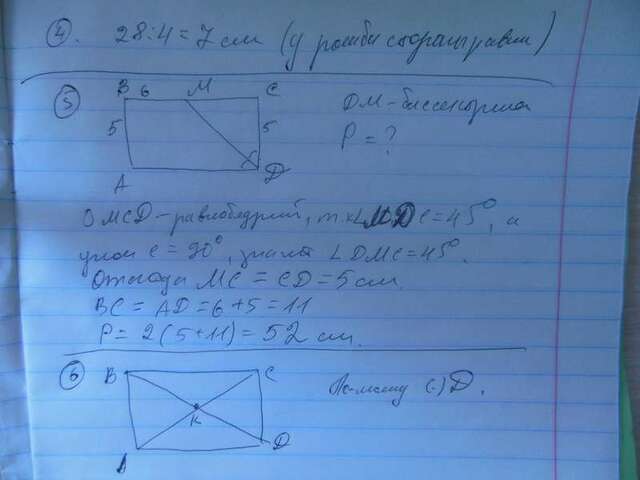 ④. 28:4=7 см (у ромба стороны равны)
⑤ B 6 M C
DM - биссектриса
5 5
P = ?
A D
△ MCD - равнобедрий, т.к ∠MDC=45°, а
угол C = 90°, значит ∠DMC=45°.
Отсюда MC = CD = 5 см.
BC = AD = 6+5 = 11
P = 2(5+11) = 52 см.
⑥ B C
D.
K
A D